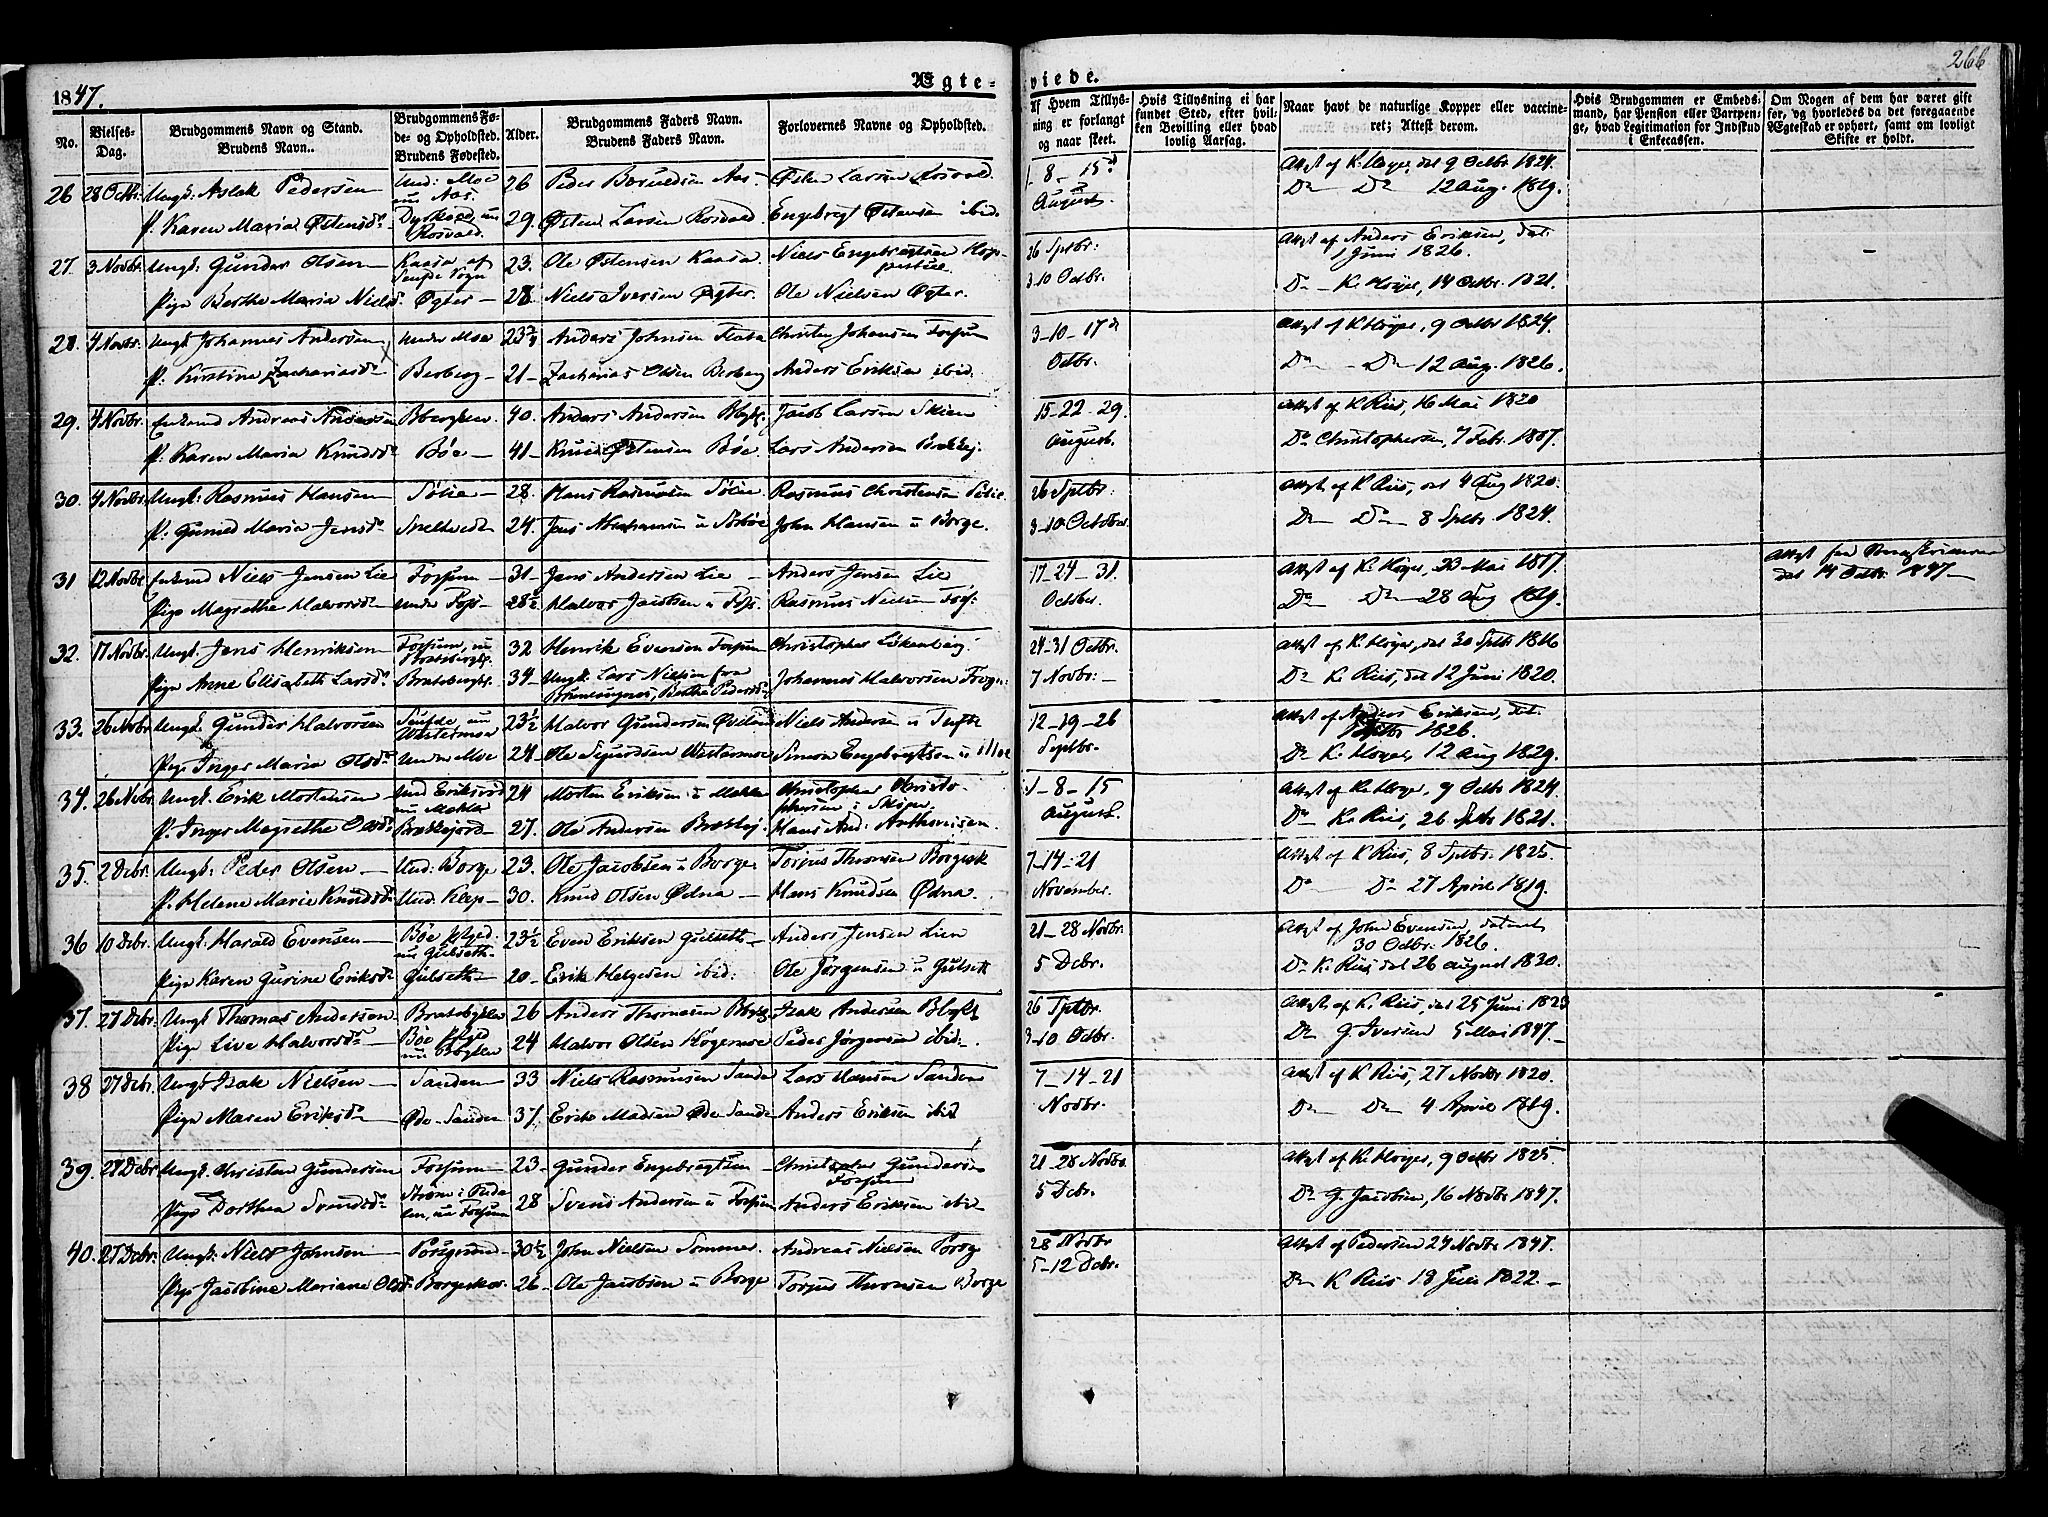 1847.
Ægte-
viede.
266
No.
Vielses-
Dag.
Brudgommens Navn og Stand.
Brudens Navn..
Brudgommens Fø-
de- og Opholdsted.
Brudens Fødested.
Alder.
Brudgommens Faders Navn.
Brudens Faders Navn.
Forlovernes Navne og Opholdsted.
Af Hvem Tillys-
ning er forlangt
og naar skeet.
Hvis Tillysning ei har
fundet Sted, efter hvil-
ken Bevilling eller hvad
lovlig Aarsag.
Naar havt de naturlige Kopper eller vaccine-
ret; Attest derom.
Hvis Brudgommen er Embeds-
mand, har Pension eller Vartpen-
ge, hvad Legitimation for Indskud
i Enkecassen.
Om Nogen af dem har været gift
før, og hvorledes da det foregaaende
Ægteskab er ophørt, samt om lovligt
Skifte er holdt.
26 28 Octbr. Ungk: Aslak Pedersen Und: Moe nu Aas. 26 Peder Aas. Østen Larsen Rosvald 1- 8- 15d August. Attest af K. Høyer, det 9 Octbr 1824.
P. Karen Maria Østensdr nu Rosvald. 29. Østen Larsen Rosvald Engebregt Østensen ibid. Do Do 12 Aug. 1819.
27. 3 Novbr. Ungk: Gunder Olsen Kaasa af Sogn 23. Ole Østensen Kaasa Niels Engebretsen 26 Sptbr: Attest af Anders Eriksen, dat: 1 Juni 1826.
Pige Berthe Maria Nielsd. Øgter 28 Niels Iversen Øgter. Ole Nielsen Øgter. 3-10 Octbr. Do K. Høyer, 14 Octbr. 1821.
28. 4 Novbr. Ungk Johannes Andersen Under Moe 23 3/4 Anders Johnsen Flata Christen Johansen Fossum 3-10-17d Octbr. Attest af K Høyer, 9 Octbr 1824.
P. Kirstine Zachariasdr Berberg 21 Zacharias Olsen Berberg Anders Eriksen ibid. Do Do 12 Aug. 1826.
29. 4 Novbr. Enkemd Andreas Andersen 40. Anders Andersen Jacob Larsen Skien 15-22-29. August. Attest af K Riis, 16 Mai 1820
P. Karen Maria Knudsdr Bøe 41 Knud Østensen Bøe Lars Andersen Do Christophersen, 7 Febr. 1807.
30. 4 Novbr. Ungk: Rasmus Hansen Sølie 28. Hans Rasmusen Sølie Rasmus Christensen Sølie 26 Sptbr: Attest af K Riis, det 4 Aug 1820.
P: Gunild Maria Jensdr 24. Jens Abrahamsen u John Hansen u Borge. 3-10 October Do Do 8 Sptbr. 1824.
31 12 Novbr Enkemd Niels Jensen Lie Fossum 31 Jens Andersen Lie Anders Jensen Lie 17-24-31. October. Attest af K. Høyer, 23 Mai 1817. Attest fra det 14 Octbr. 1847
Pige Magrethe Halvorsdr under Foss 28 1/2 Halvor Jacobsen u Foss. Rasmus Nielsen Foss: Do Do 28 Aug 1819.
32. 17 Novbr. Ungk. Jens Henriksen Fossum, nu Bratsbergkl. 32 Henrik Evensen Fossum Christopher 24-31 Octbr. Attest af K. Høyer, det 30 Sptbr 1816
Pige Anne Elisabeth Larsdr Bratsbergkl. 34 Ungk. Lars Nielsen fra Berthe Pedersdr Johannes Halvorsen 7 Novbr: Do K. Riis, det 12 Juni 1820.
33. 26 Novbr Ungk. Gunder Halvorsen nu Westermoe 23 1/2 Halvor Gundersen Niels Andersen u Tufte 12-19-26 Septbr. Attest af Anders Eriksen, dat. 1826.
Pige Inger Maria Olsdr Under Moe 24 Ole Sigurdsen Westermoe Simon Engebregtsen u Moe Do K. Høyer, 12 Aug 1829.
34. 26 Novbr Ungk. Erik Mortensen nu Mæhla 24 Morten Eriksen u Mæhla Christopher Christophersen i Skien 1- 8- 15 August. Attest af K. Høyer, 9 Octbr 1824.
P. Inger Magrethe Olsdr 27. Ole Andersen Hans And: Anthonisen. Do K. Riis, 26 Sptbr 1821.
35. 2 Dcbr. Ungk: Peder Olsen Und: Borge 23. Ole Jacobsen u Borge Torjus Thronsen 7-14-21 November. Attest af K Riis, 8 Sptbr: 1825.
P. Helene Marie Knudsdr Und. Klep 30. Knud Olsen Ødna Hans Knudsen Ødna. Do Do 27 April 1819.
36 10 Dcbr. Ungk: Harald Evensen Bøe nu Gulseth 23 1/2 Even Eriksen Gulseth Anders Jensen Lien 21-28 Novbr. Attest af John Evensen, dateret 30 Octbr: 1826.
Pige Karen Gurine Eriksdr Gulseth 20 Erik Helgesen ibid: Ole Jørgensen u Gulseth 5 Dcbr. Do K. Riis det 26 August 1830.
37. 27 Dcbr. Ungk Thomas Andersen 26 Anders Thomesen Isak Andersen 26 Sptbr. Attest af K. Riis, det 25 Juni 1823
Pige Live Halvorsdr Bøe 24 Halvor Olsen Høgemoe Peder Jørgensen ibid. 3-10 Octbr. Do J. Iversen 5 Mai 1847.
38 27 Dcbr. Ungk Isak Nielsen Sanden 33 Niels Rasmusen Sanden Lars Hansen Sanden 7-14-21 Novbr. Attest af K Riis, 27 Novbr 1820.
Pige Maren Eriksdr Øde-Sanden 37. Erik Madsen Øde Sanden Anders Eriksen ibid Do Do 4 April 1819.
39. 27 Dcbr Ungk. Christen Gundersen Fossum 23 Gunder Engebregtsen Christopher Gundersen Fossum 21-28 Novbr. Attest af K. Høyer, 9 Octbr 1825.
Pige Dorthea Svendsdr nu Fossum 28 Svend Andersen u Fossum Anders Eriksen ibid 5 Dcbr. Do J. Jacobsen, 16 Novbr 1847.
40. 27 Dcbr. Ungk: Niels Johnsen Porsgrund 30 1/2 John Nielsen Sommer. Andreas Nielsen 28 Novbr Attest af Pedersen 24 Novbr 1847.
Pige Jacobine Mariane Olsd. 26 Ole Jacobsen u Borge Torjus Thronsen Borge 5-12 Dcbr. Do K Riis 18 Juli 1822.